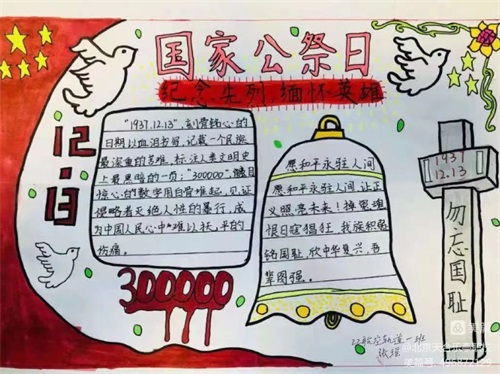 国家公祭日
纪念先烈,缅怀英雄
12.13
"1937.12.13",刻骨铭心的
日期以血泪书写,记载一个民族
最深重的苦难,标注人类文明史
上最黑暗的一页;"300000",触目
惊心的数字用白骨堆起,见证
侵略者灭绝人性的暴行,成
为中国人民心中难以抚平的
伤痛。
300000
愿和平永驻人间
愿和平永驻人间 让正
义照亮未来!悼罹难
恨日寇猖狂,我族积弱
铭国耻,欣中华复兴,吾
辈图强。
1937
12.13
勿忘国耻
一班
张瑶